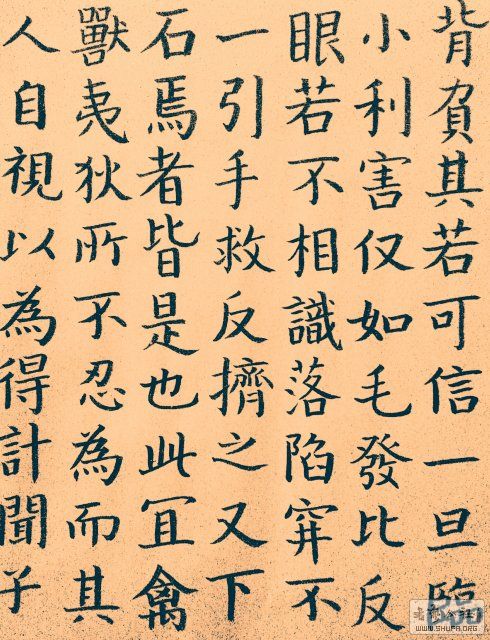 背負其若可信一旦臨
小利害仅如毛發比反
眼若不相識落陷穽不
一引手救反擠之又下
石焉者皆是也此宜禽
獸夷狄所不忍為而其
人自視以為得計聞子
WWW.SHUFA.ORG